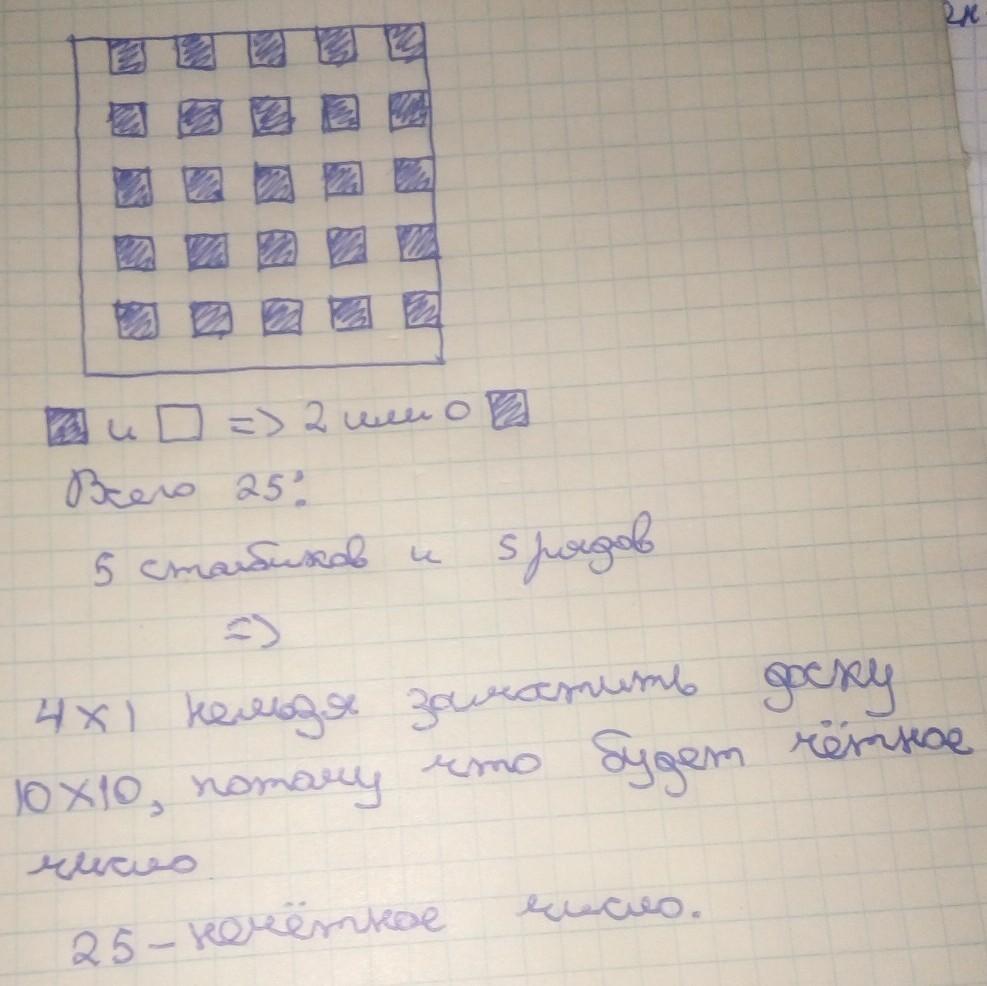 2к
и => 2 или 0
Всего 25:
5 столбиков и 5 рядов
=>
4×1 нельзя замостить доску
10×10, потому что будет чётное
число
25 – нечётное число.